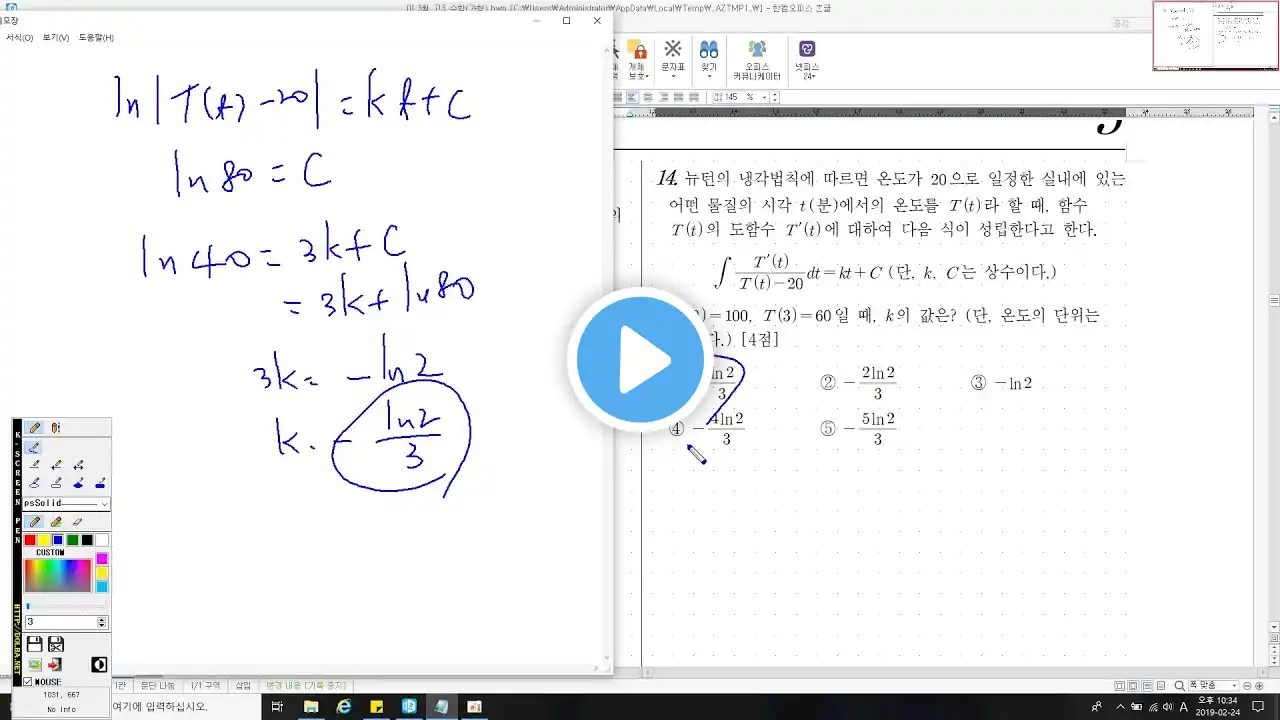 서식(O) 보기(V) 도움말(H)
개체 보호
문자표
찾기
오피스 커뮤니케이터
넷피스 24
145 %
ln|T(t)-20|=kt+C
ln80=C
ln40=3k+C
=3k+ln80
3k=-ln2
k=-ln2/3
14. 뉴턴의 냉각법칙에 따르면 온도가 20으로 일정한 실내에 있는
어떤 물질의 시각 t(분)에서의 온도를 T(t)라 할 때, 함수
T(t)의 도함수 T′(t)에 대하여 다음 식이 성립한다고 한다.
∫ T′(t)/(T(t)-20) dt=kt+C (단, k, C는 상수이다.)
)=100, T(3)=60일 때, k의 값은? (단, 온도의 단위는
다.) [4점]
ln2/3 ② -2ln2/3 ③ -ln2
④ -4ln2/3 ⑤ -5ln2/3
K-SCREEN PEN
HTTP://DOLBA.NET
psSolid
CUSTOM
3
MOUSE
1031, 667
No Info
문단 나눔 1/1 구역 삽입 변경 내용 [기록 중지]
폭 맞춤
여기에 입력하십시오.
A 오후 10:34
2019-02-24